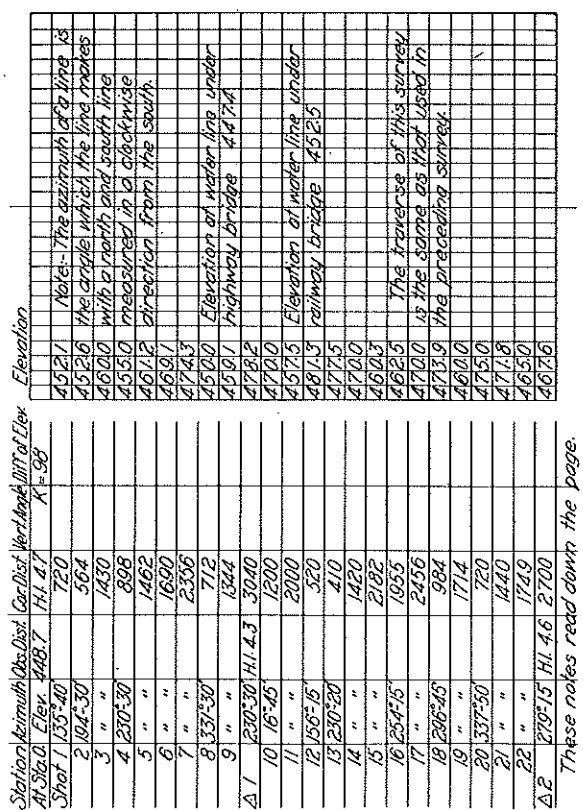 Station Azimuth Obs.Dist. Cor.Dist. Vert.Angle Diff of Elev. Elevation
At Sta.0. Elev. 448.7 H.I. 4.7 K=.98
Shot 1 135°-40' 720 452.1 Note:- The azimuth of a line is
2 194°-30' 564 452.6 the angle which the line makes
3 " " 1430 460.0 with a north and south line
4 230°-30' 898 455.0 measured in a clockwise
5 " " 1462 461.2 direction from the south.
6 " " 1690 469.1
7 " " 2356 474.3
8 331°-30' 712 450.0 Elevation at water line under
9 " " 1344 459.1 highway bridge 447.4
Δ 1 230°-30' H.I. 4.3 3040 478.2
10 16°-45' 1200 470.0
11 " " 2000 457.5 Elevation at water line under
12 156°-15' 520 481.3 railway bridge 452.5
13 230°-20' 410 477.5
14 " " 1420 470.0
15 " " 2182 460.3
16 254°-15' 1955 462.5 The traverse of this survey
17 " " 2456 470.0 is the same as that used in
18 296°-45' 984 473.9 the preceding survey.
19 " " 1714 460.0
20 337°-50' 720 475.0
21 " " 1440 471.8
22 " " 1749 465.0
Δ 2 279°-15' H.I. 4.6 2700 467.6
These notes read down the page.